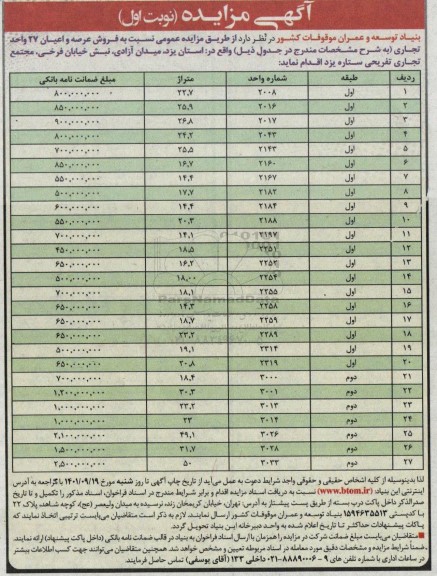 آگهی مزایده (نوبت اول)
بنیاد توسعه و عمران موقوفات کشور در نظر دارد از طریق مزایده عمومی نسبت به فروش عرصه و اعیان ۲۷ واحد
تجاری (به شرح مشخصات مندرج در جدول ذیل) واقع در: استان یزد، میدان آزادی، نبش خیابان فرخی، مجتمع
تجاری تفریحی ستاره یزد اقدام نماید:
ردیف طبقه شماره واحد متراژ مبلغ ضمانت نامه بانکی
۱ اول ۲۰۰۸ ۲۲,۷ ۸۰۰,۰۰۰,۰۰۰
۲ اول ۲۰۱۶ ۲۵,۹ ۸۵۰,۰۰۰,۰۰۰
۳ اول ۲۰۱۷ ۲۶,۸ ۹۰۰,۰۰۰,۰۰۰
۴ اول ۲۰۴۳ ۲۴,۲ ۸۰۰,۰۰۰,۰۰۰
۵ اول ۲۱۴۳ ۲۵,۵ ۷۰۰,۰۰۰,۰۰۰
۶ اول ۲۱۶۰ ۱۶,۷ ۸۵۰,۰۰۰,۰۰۰
۷ اول ۲۱۶۷ ۱۴,۴ ۵۵۰,۰۰۰,۰۰۰
۸ اول ۲۱۸۲ ۱۷,۷ ۵۰۰,۰۰۰,۰۰۰
۹ اول ۲۱۸۴ ۱۴,۴ ۶۰۰,۰۰۰,۰۰۰
۱۰ اول ۲۱۸۸ ۲۰,۳ ۵۵۰,۰۰۰,۰۰۰
۱۱ اول ۲۱۹۷ ۱۴,۱ ۷۰۰,۰۰۰,۰۰۰
۱۲ اول ۲۲۵۱ ۱۸,۵ ۴۵۰,۰۰۰,۰۰۰
۱۳ اول ۲۲۵۲ ۱۶,۲ ۶۵۰,۰۰۰,۰۰۰
۱۴ اول ۲۲۵۴ ۱۸,۰۰ ۵۰۰,۰۰۰,۰۰۰
۱۵ اول ۲۲۵۵ ۱۸,۱ ۷۰۰,۰۰۰,۰۰۰
۱۶ اول ۲۲۵۸ ۱۴,۳ ۶۵۰,۰۰۰,۰۰۰
۱۷ اول ۲۲۵۹ ۱۸,۷ ۶۵۰,۰۰۰,۰۰۰
۱۸ اول ۲۲۸۹ ۲۳,۲ ۶۵۰,۰۰۰,۰۰۰
۱۹ اول ۲۳۱۴ ۱۹,۱ ۵۰۰,۰۰۰,۰۰۰
۲۰ اول ۲۳۱۹ ۲۰,۸ ۶۵۰,۰۰۰,۰۰۰
۲۱ دوم ۳۰۰۰ ۱۸,۴ ۷۰۰,۰۰۰,۰۰۰
۲۲ دوم ۳۰۰۱ ۳۰,۳ ۱,۲۰۰,۰۰۰,۰۰۰
۲۳ دوم ۳۰۱۳ ۲۳,۲ ۱,۰۰۰,۰۰۰,۰۰۰
۲۴ دوم ۳۰۱۴ ۲۳ ۱,۰۰۰,۰۰۰,۰۰۰
۲۵ دوم ۳۰۲۶ ۴۹,۱ ۲,۱۰۰,۰۰۰,۰۰۰
۲۶ دوم ۳۰۲۸ ۳۱,۷ ۱,۵۰۰,۰۰۰,۰۰۰
۲۷ دوم ۳۰۳۳ ۵۰ ۲,۵۰۰,۰۰۰,۰۰۰
لذا بدینوسیله از کلیه اشخاص حقیقی و حقوقی واجد شرایط دعوت به عمل می‌آید از تاریخ چاپ آگهی تا روز شنبه مورخ ۱۴۰۱/۰۹/۱۹ با مراجعه به آدرس
اینترنتی این بنیاد (www.btom.ir) نسبت به دریافت اسناد مزایده اقدام و برابر شرایط مندرج در اسناد فراخوان، اسناد مذکور را تکمیل و تا تاریخ
صدرالذکر داخل پاکت درب بسته از طریق پست پیشتاز به آدرس: تهران، خیابان کریمخان زند، نرسیده به میدان ولیعصر (عج)، کوچه شاهد، پلاک ۲۲
با کدپستی ۱۵۹۴۶۳۵۵۱۳ بنیاد توسعه و عمران موقوفات کشور ارسال نمایند. لازم به ذکر است متقاضیان می‌بایست ترتیبی اتخاذ نمایند که
پاکات پیشنهادات حداکثر تا تاریخ اعلام شده به واحد دبیرخانه این بنیاد تحویل گردد.
متقاضیان می‌بایست مبلغ ضمانت شرکت در مزایده را همزمان با ارسال اسناد فراخوان به بنیاد در قالب ضمانت نامه بانکی (داخل پاکت پیشنهاد) ارائه نمایند.
ضمناً شرایط مزایده و مشخصات دقیق مورد معامله در اسناد مربوطه تعیین و مشخص خواهد شد. همچنین متقاضیان می‌توانند جهت کسب اطلاعات بیشتر
در ساعات اداری با شماره تلفن های ۹ - ۸۸۸۹۰۰۰۶-۰۲۱ داخلی ۱۲۳ (آقای یوسفی) تماس حاصل فرمایند.